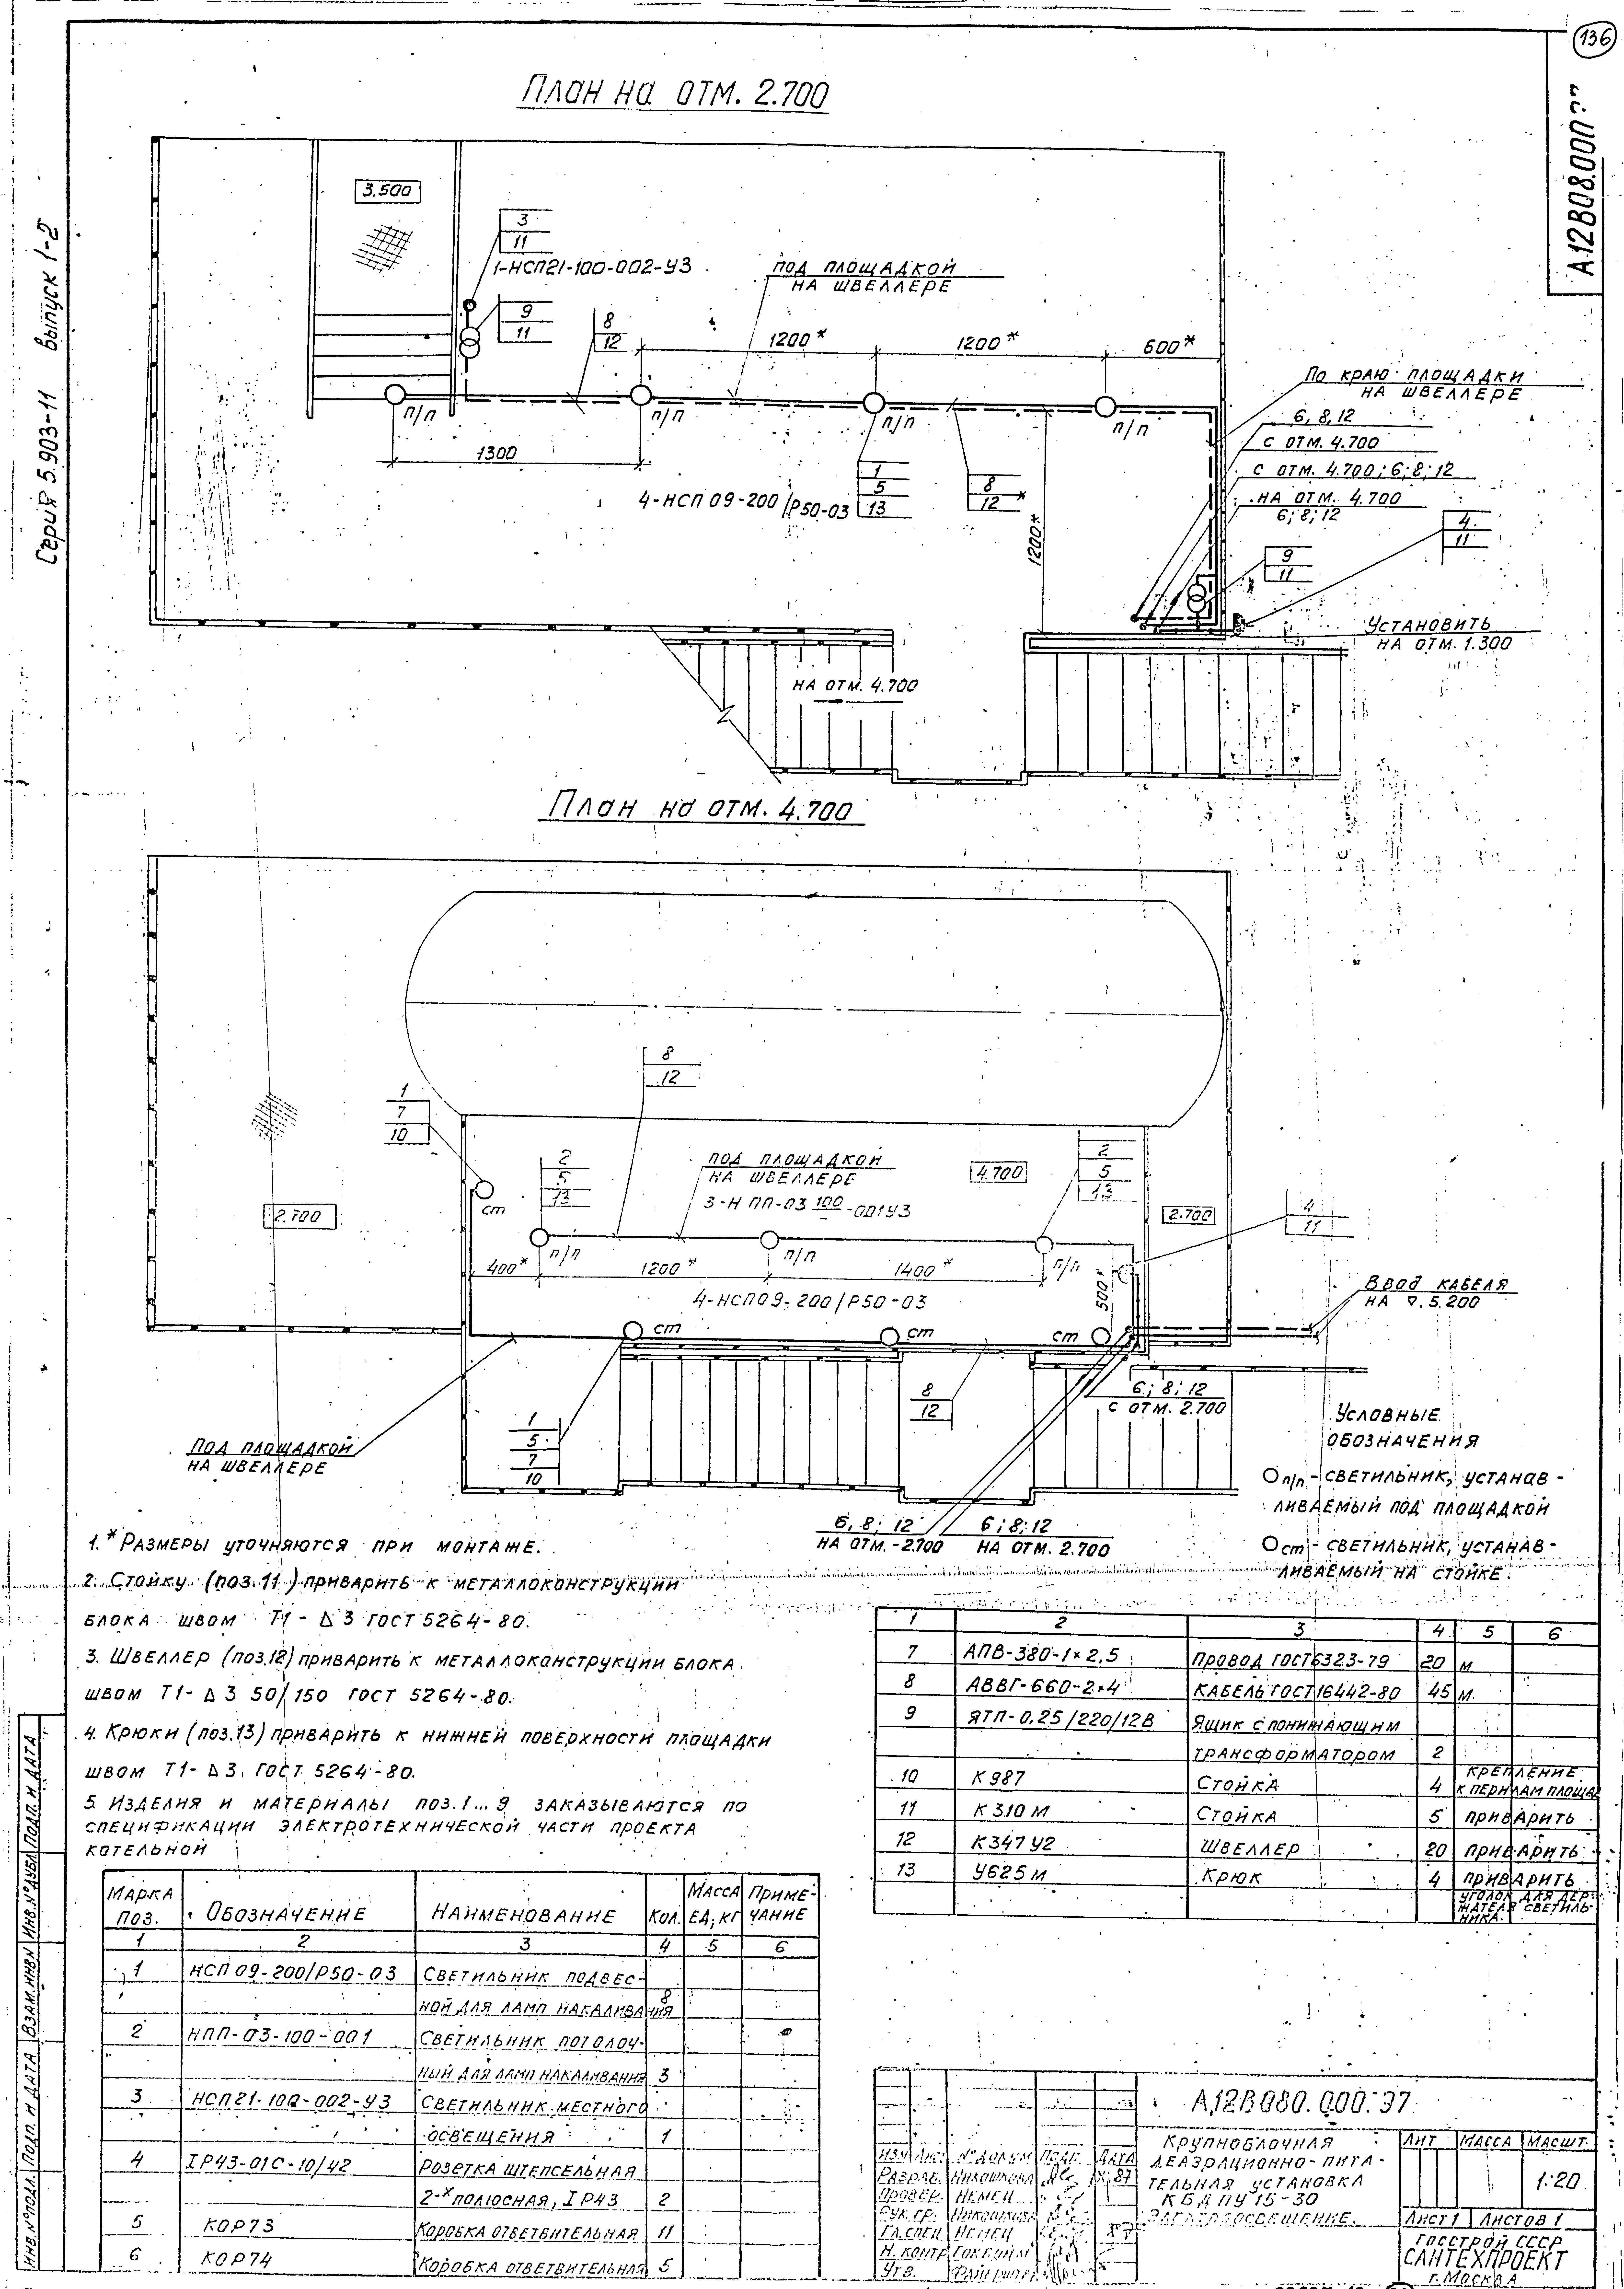 136
А12В08.000
Серия 5.903-11 выпуск 1-2
План на отм. 2.700
3.500
3
11
1-НСП21-100-002-У3
9
11
8
12
под площадкой
на швеллере
1200*
1200*
600*
п/п
п/п
п/п
п/п
1300
4-НСП 09-200/Р50-03
1
5
13
8
12
1200*
По краю площадки
на швеллере
6, 8, 12
с отм. 4.700
с отм. 4.700; 6; 8; 12
на отм. 4.700
6; 8; 12
4
11
9
11
Установить
на отм. 1.300
на отм. 4.700
План на отм. 4.700
8
12
1
7
10
2
5
13
под площадкой
на швеллере
3-НПП-03 100 -001У3
4.700
2
5
13
ст
2.700
2.700
4
11
п/п
п/п
п/п
400*
1200*
1400*
500*
4-НСП09-200/Р50-03
Ввод кабеля
на ∇.5.200
ст
ст
ст
8
12
6; 8; 12
с отм. 2.700
1
5
7
10
Под площадкой
на швеллере
6, 8; 12
на отм.-2.700
6; 8; 12
на отм. 2.700
Условные
обозначения
О п/п - светильник, устанав-
ливаемый под площадкой
О ст - светильник, устанав-
ливаемый на стойке.
1.* Размеры уточняются при монтаже.
2. Стойку (поз.11) приварить к металлоконструкции
блока швом Т1-Δ3 ГОСТ 5264-80.
3. Швеллер (поз.12) приварить к металлоконструкции блока
швом Т1-Δ3 50/150 ГОСТ 5264-80.
4. Крюки (поз.13) приварить к нижней поверхности площадки
швом Т1-Δ3, ГОСТ 5264-80.
5. Изделия и материалы поз.1...9 заказываются по
спецификации электротехнической части проекта
котельной
Марка поз. Обозначение Наименование Кол. Масса ед, кг Примечание
1 2 3 4 5 6
1 НСП 09-200/Р50-03 Светильник подвес-
ной для ламп накаливания 8
2 НПП-03-100-001 Светильник потолоч-
ный для ламп накаливания 3
3 НСП21-100-002-У3 Светильник местного
освещения 1
4 IР43-01С-10/42 Розетка штепсельная
2-х полюсная, IР43 2
5 КОР73 Коробка ответвительная 11
6 КОР74 Коробка ответвительная 5
1 2 3 4 5 6
7 АПВ-380-1×2,5 Провод ГОСТ6323-79 20 м
8 АВВГ-660-2×4 Кабель ГОСТ16442-80 45 м
9 ЯТП-0.25/220/12В Ящик с понижающим
трансформатором 2
10 К987 Стойка 4 крепление к перилам площад
11 К310М Стойка 5 приварить
12 К347У2 Швеллер 20 приварить
13 У625М Крюк 4 приварить
уголок для дер-
жателя светиль-
ника.
А12В080.000.37
Крупноблочная
деаэрационно-пита-
тельная установка
КБДПУ 15-30
Электроосвещение.
Лит Масса Масшт.
1:20
Лист 1 Листов 1
Госстрой СССР
Сантехпроект
г. Москва
Изм Лист № докум Подп. Дата
Разраб. 87
Провер. Немец
Рук. гр.
Гл.спец. Немец
Н. контр.
Утв.
Инв.№подл. Подп. и дата Взам.инв№ Инв.№дубл Подп. и дата